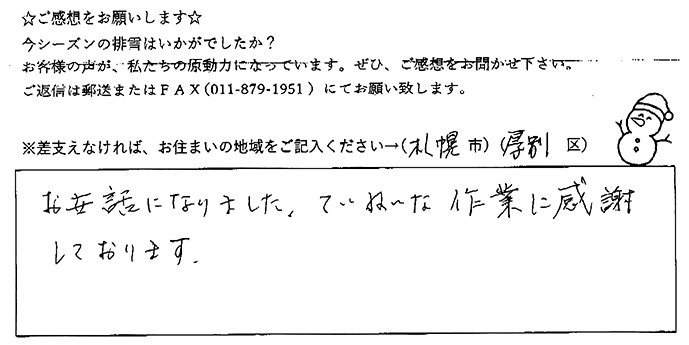 ☆ご感想をお願いします☆
今シーズンの排雪はいかがでしたか？
お客様の声が、私たちの原動力になっています。ぜひ、ご感想をお聞かせ下さい。
ご返信は郵送またはＦＡＸ（011-879-1951）にてお願い致します。
※差支えなければ、お住まいの地域をご記入ください→（札幌市）（厚別区）
お世話になりました、ていねいな作業に感謝
しております.